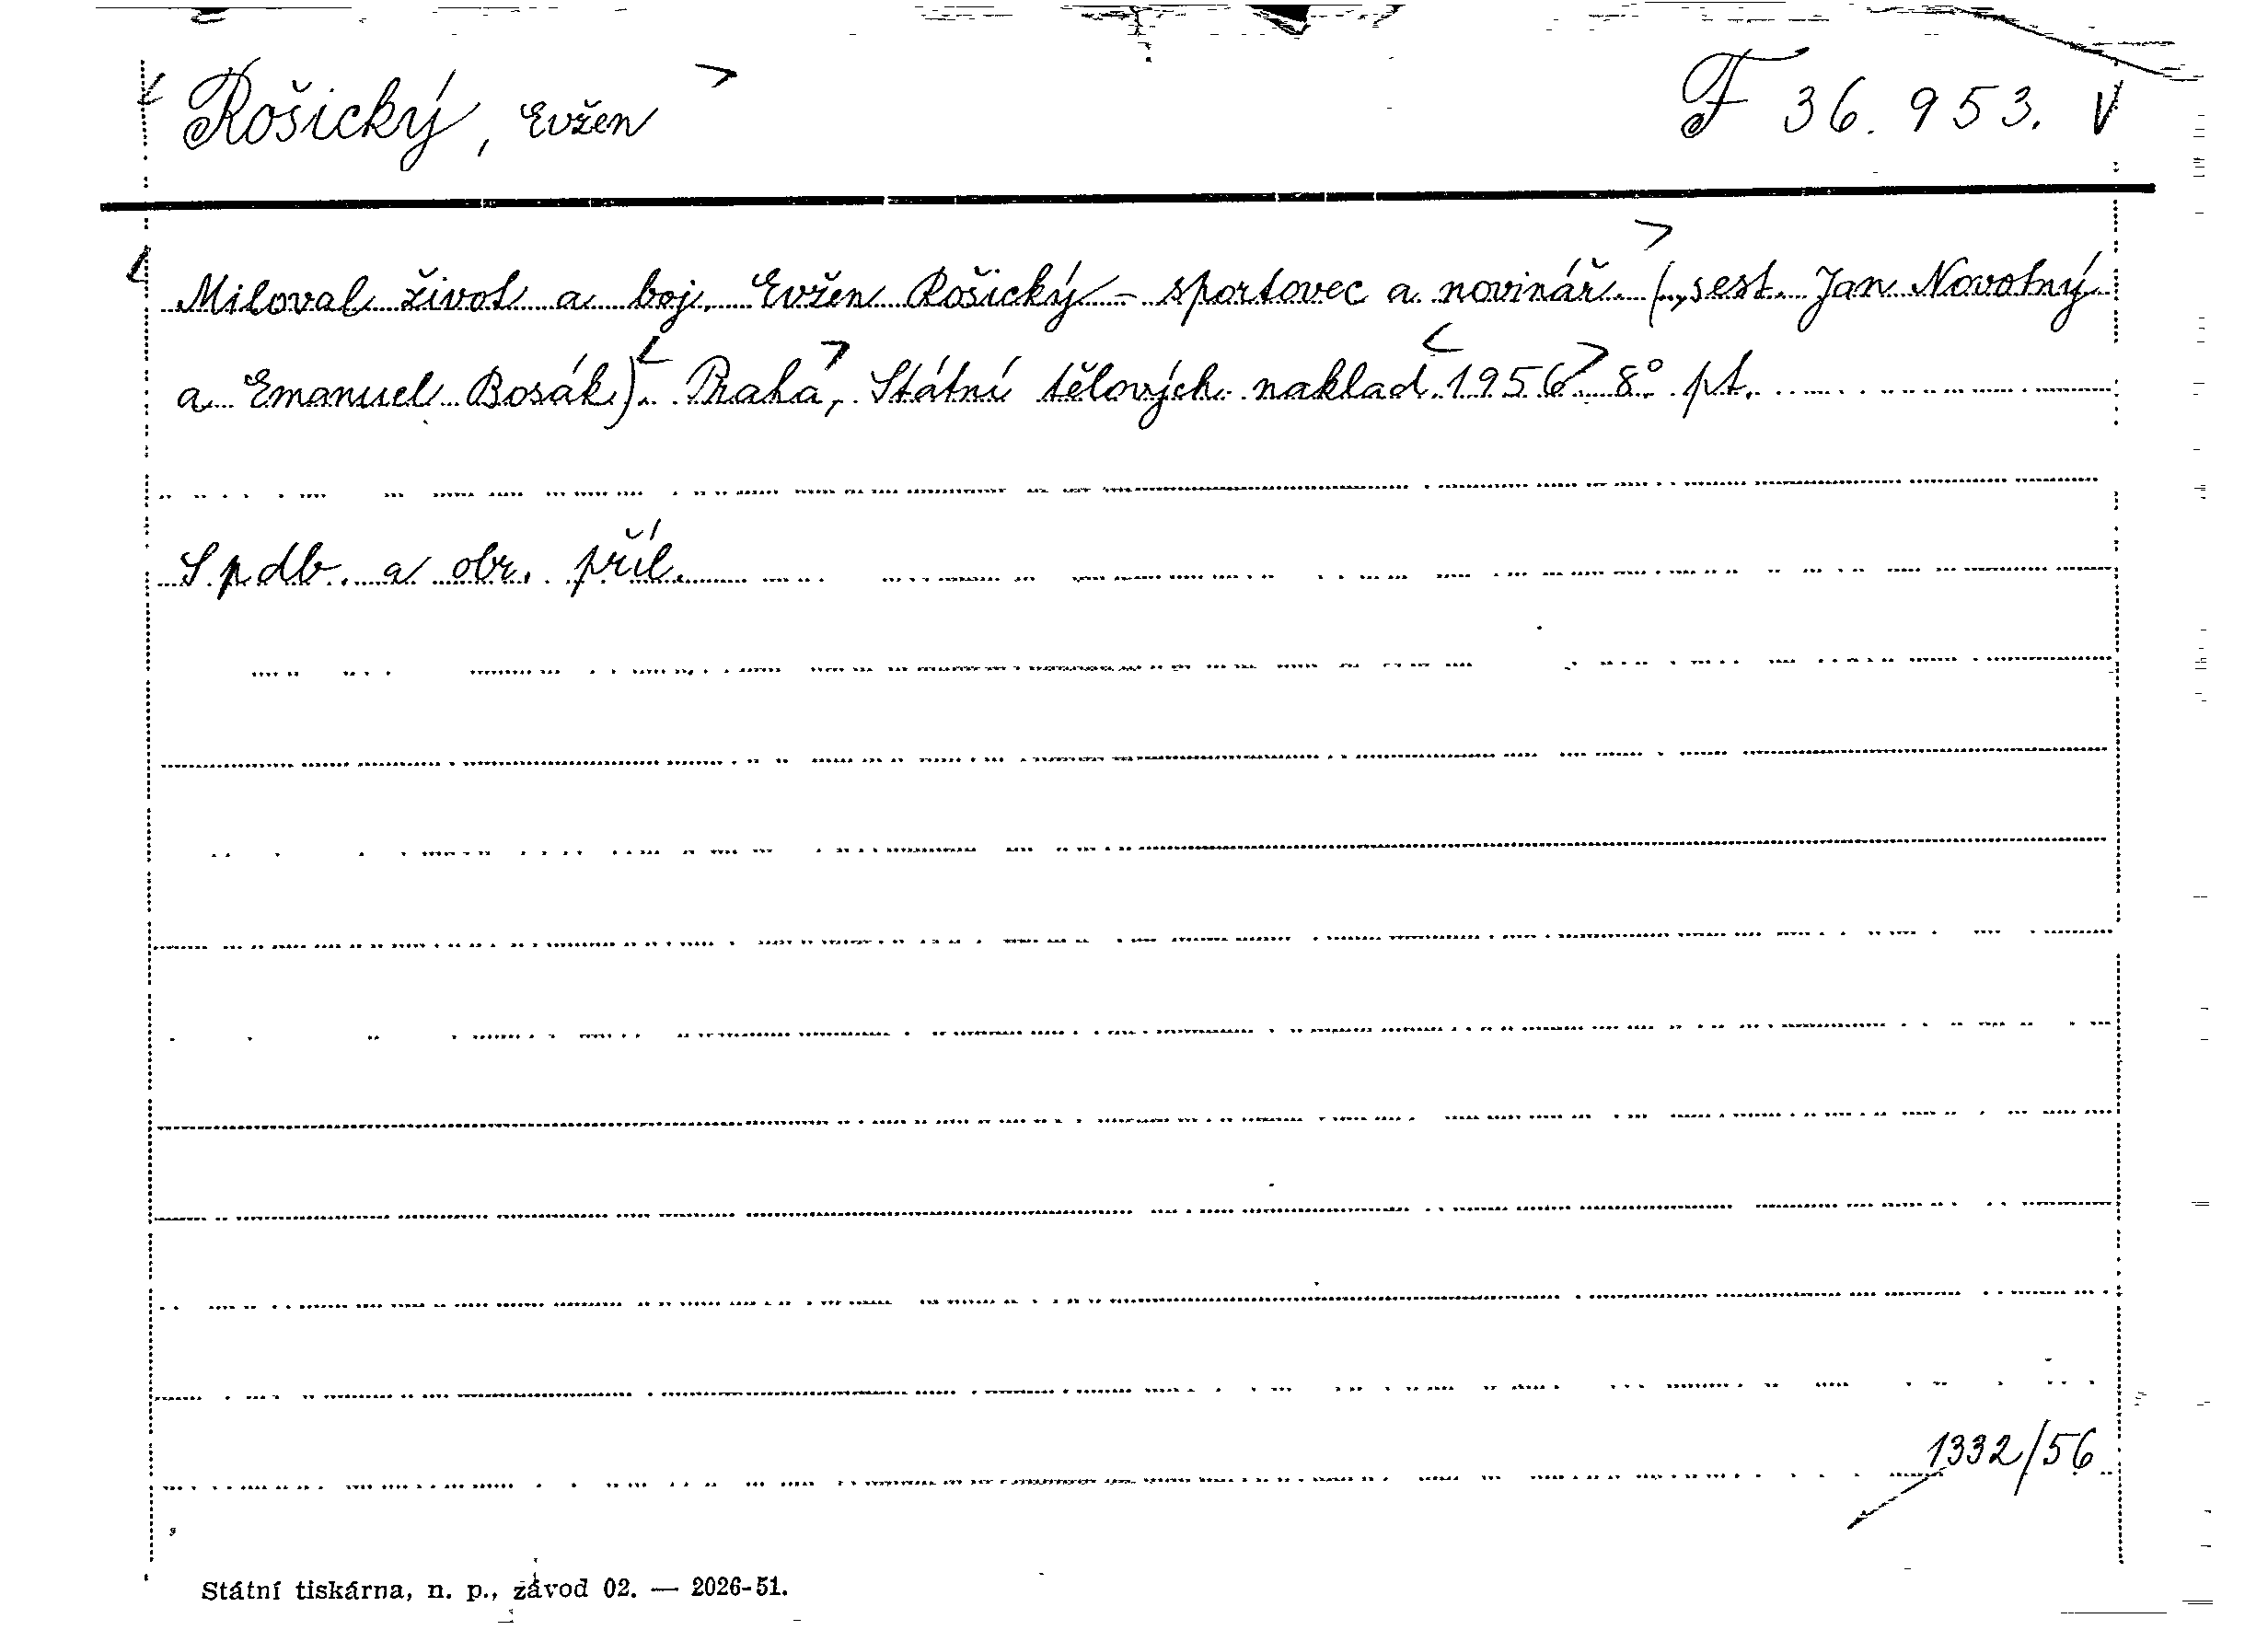 Rošický, Evžen F 36.953. V
Miloval život a boj. Evžen Rošický - sportovec a novinář. (sest. Jan Novotný
a Emanuel Bosák). Praha, Státní tělových. naklad. 1956. 8° pt.
S pdb. a obr. příl.
1332/56
Státní tiskárna, n. p., závod 02. — 2026-51.